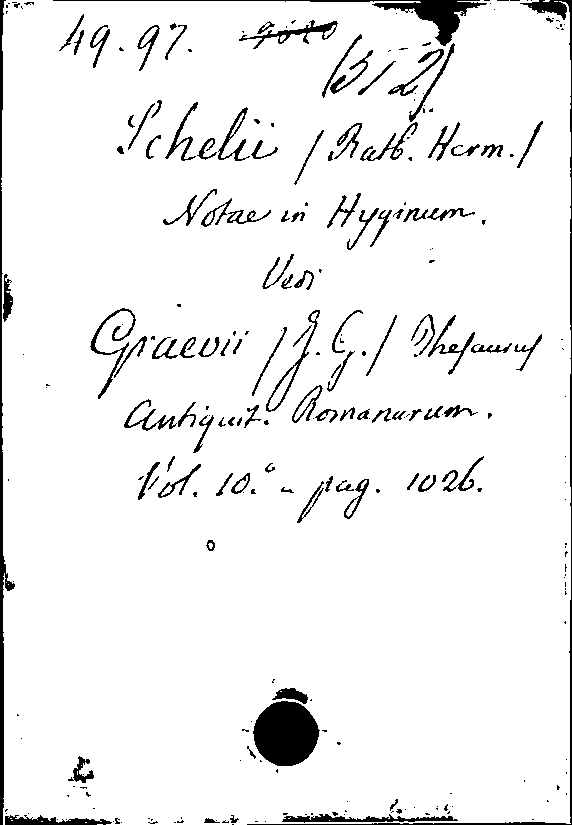 49.97.
(512)
Schelii /Ratb. Herm./
Notae in Hyginum.
Vedi
Graevii /J. G./ Thesaurus
Antiquit. Romanarum.
Vol. 10.° - pag. 1026.